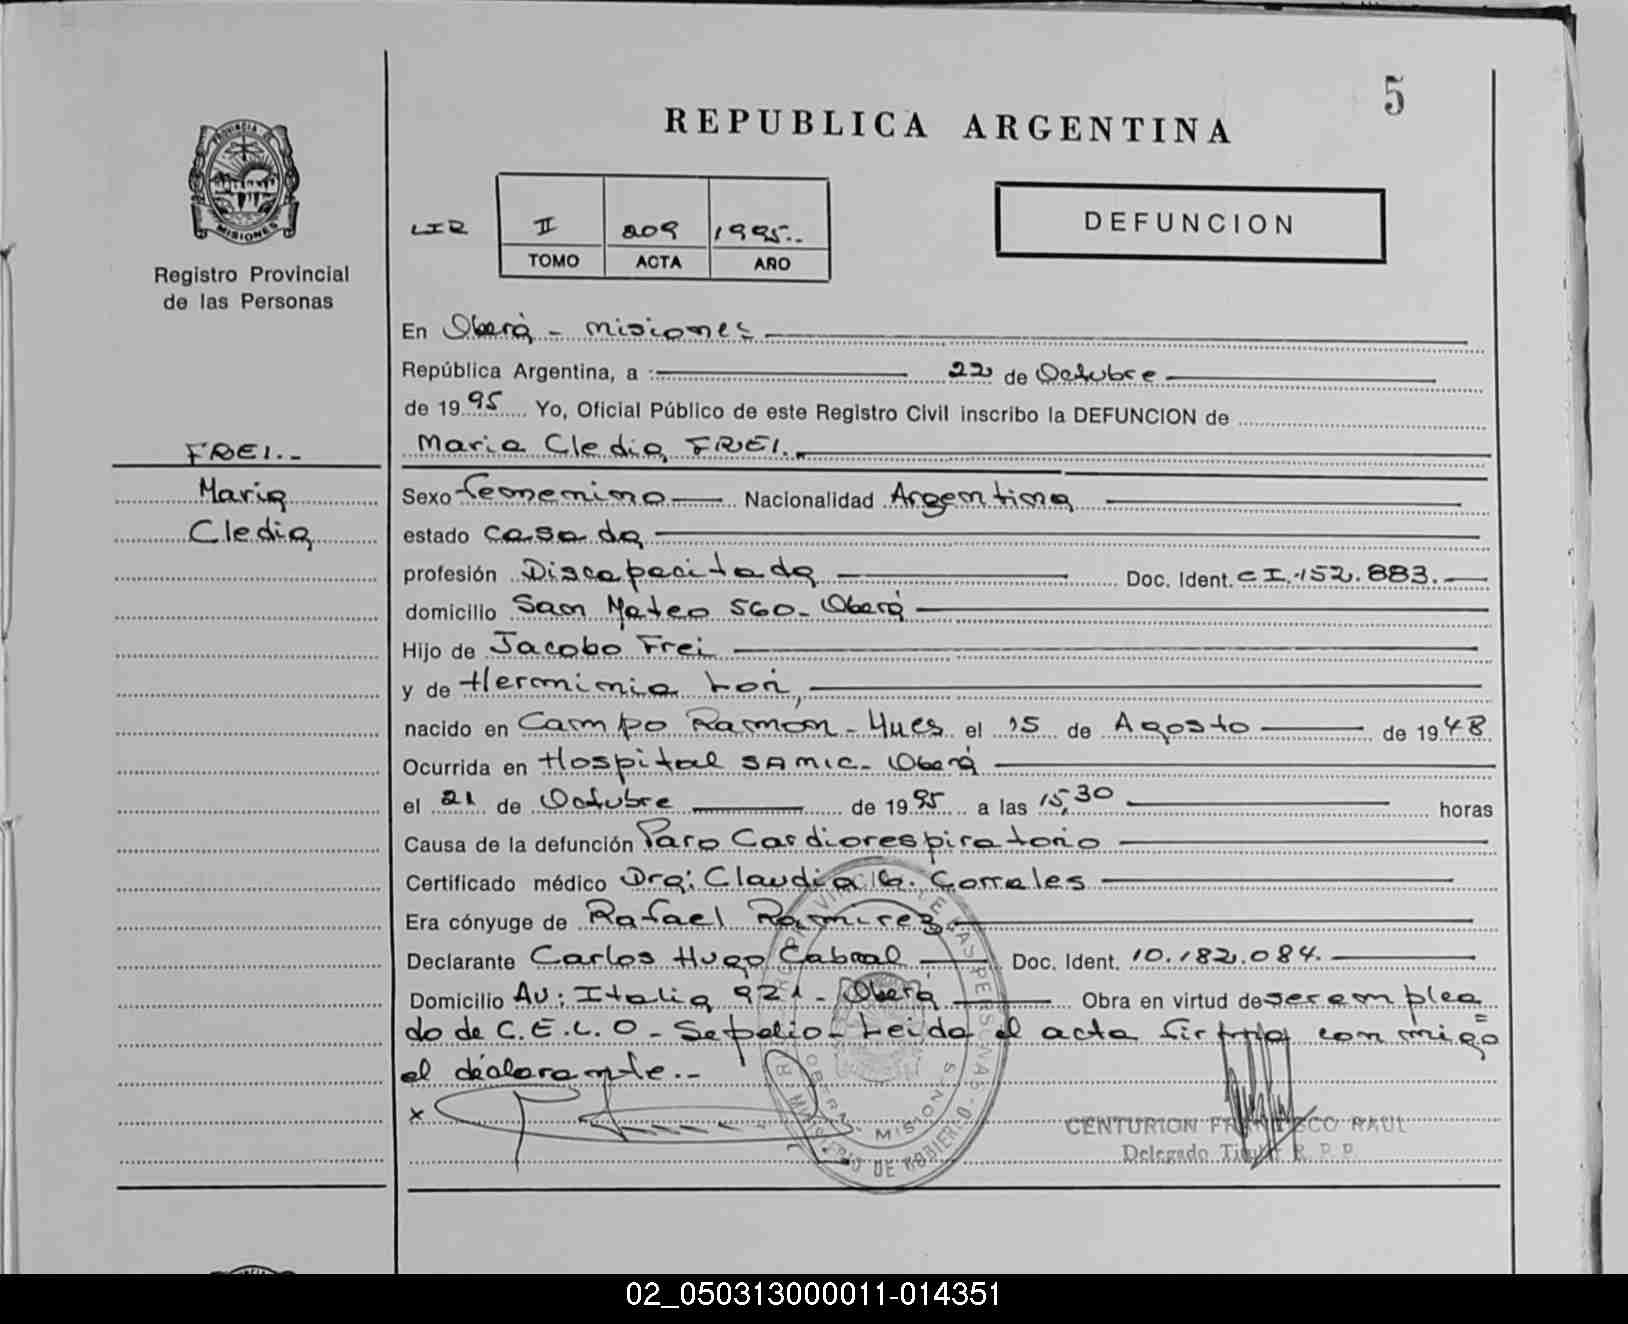 5
REPUBLICA ARGENTINA
PROVINCIA DE
MISIONES
Registro Provincial
de las Personas
DEFUNCION
II 209 1995..
TOMO ACTA AÑO
En Oberá - misiones
República Argentina, a : 22 de Octubre
de 1995 Yo, Oficial Público de este Registro Civil inscribo la DEFUNCION de
FREI.-
Maria Cledia FREI.
Maria
Cledia
Sexo femenino Nacionalidad Argentina
estado casada
profesión Discapacitada Doc. Ident. C I. 152.883.
domicilio San Mateo 560 - Oberá
Hijo de Jacobo Frei
y de Herminia
nacido en Campo Ramon - el 15 de Agosto de 1948
Ocurrida en Hospital SAMIC - Oberá
el 21 de Octubre de 1995 a las 15,30 horas
Causa de la defunción Paro Cardiorespiratorio
Certificado médico Dra: Claudia G. Corrales
Era cónyuge de Rafael Ramirez
Declarante Carlos Hugo Cabral Doc. Ident. 10.182.084.
Domicilio Av: Italia 921 - Oberá Obra en virtud de ser emplea
do de C.E.L.O - Sepelio - Leida el acta firma conmigo
el declarante.-
x
OBERA MISIONES
CENTURION FRANCISCO RAUL
Delegado Titular R. P. P.
02_050313000011-014351